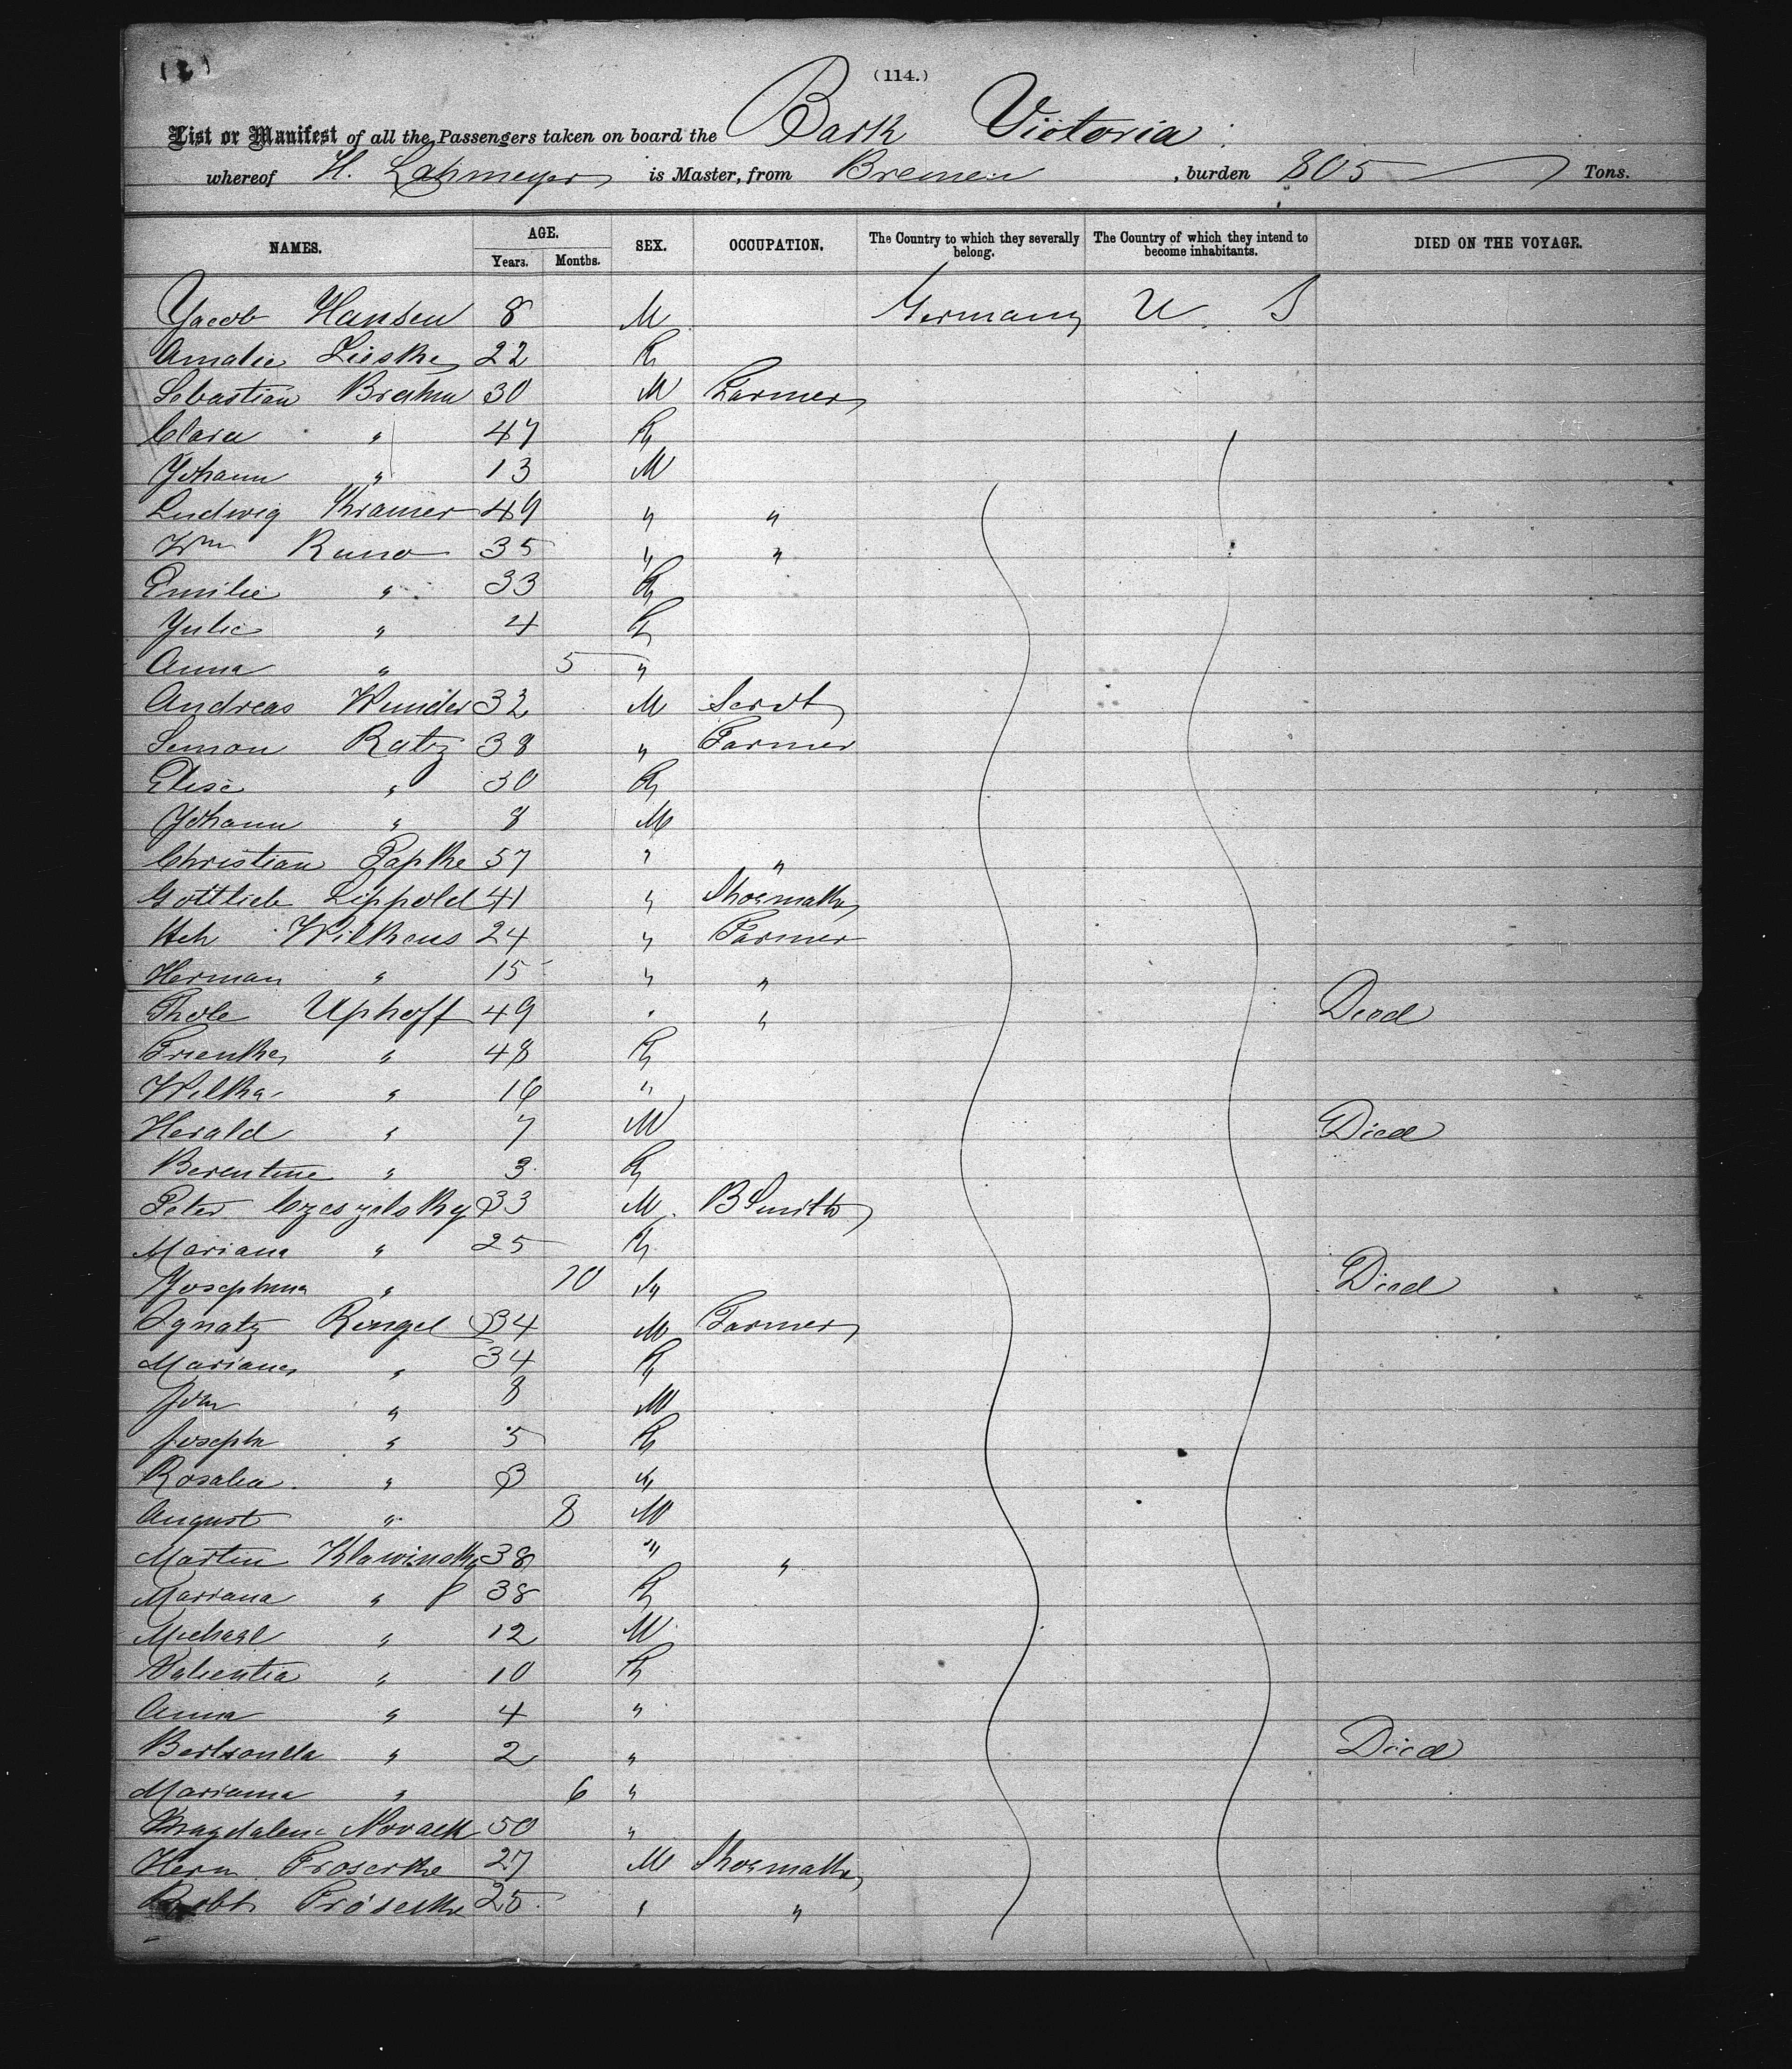 (2)
(114.)
List or Manifest of all the Passengers taken on board the Bark Victoria
whereof H. Lahmeyer is Master, from Bremen, burden 805 Tons.
NAMES. AGE. Years. Months. SEX. OCCUPATION. The Country to which they severally belong. The Country of which they intend to become inhabitants. DIED ON THE VOYAGE.
Jacob Hansen 8 M Germany U. S
Amalie Lieske 22 F
Sebastian Brehm 30 M Farmer
Clara " 47 F
Johann " 13 M
Ludwig Kramer 49 " "
Wm Runo 35 " "
Emilie " 33 F
Julie " 4 F
Anna " 5 "
Andreas Wunder 32 M Servt
Simon Ratz 38 " Farmer
Elise " 30 F
Johann " 8 M
Christian Papke 57 " "
Gottlieb Lippold 41 " Shoemaker
Hch Wilkens 24 " Farmer
Herman " 15 " "
Thole Uphoff 49 " " Died
Trienke " 48 F
Wilka " 16 "
Herald " 7 M Died
Berentine " 3 F
Peter Czeszelsky 33 M BSmith
Mariana " 25 F
Josephina " 10 " Died
Ignatz Rengel 34 M Farmer
Mariana " 34 F
Joh " 8 M
Joseph " 5 F
Rosalia " 3 "
August " 8 M
Martin Klawinsky 38 " "
Mariana " 38 F
Michael " 12 M
Valentia " 10 F
Anna " 4 "
" 2 " Died
Marianna " 6 "
Magdalena Novack 50 "
Herm Froserke 27 M Shoemaker
Robt Fröserke 25 " "